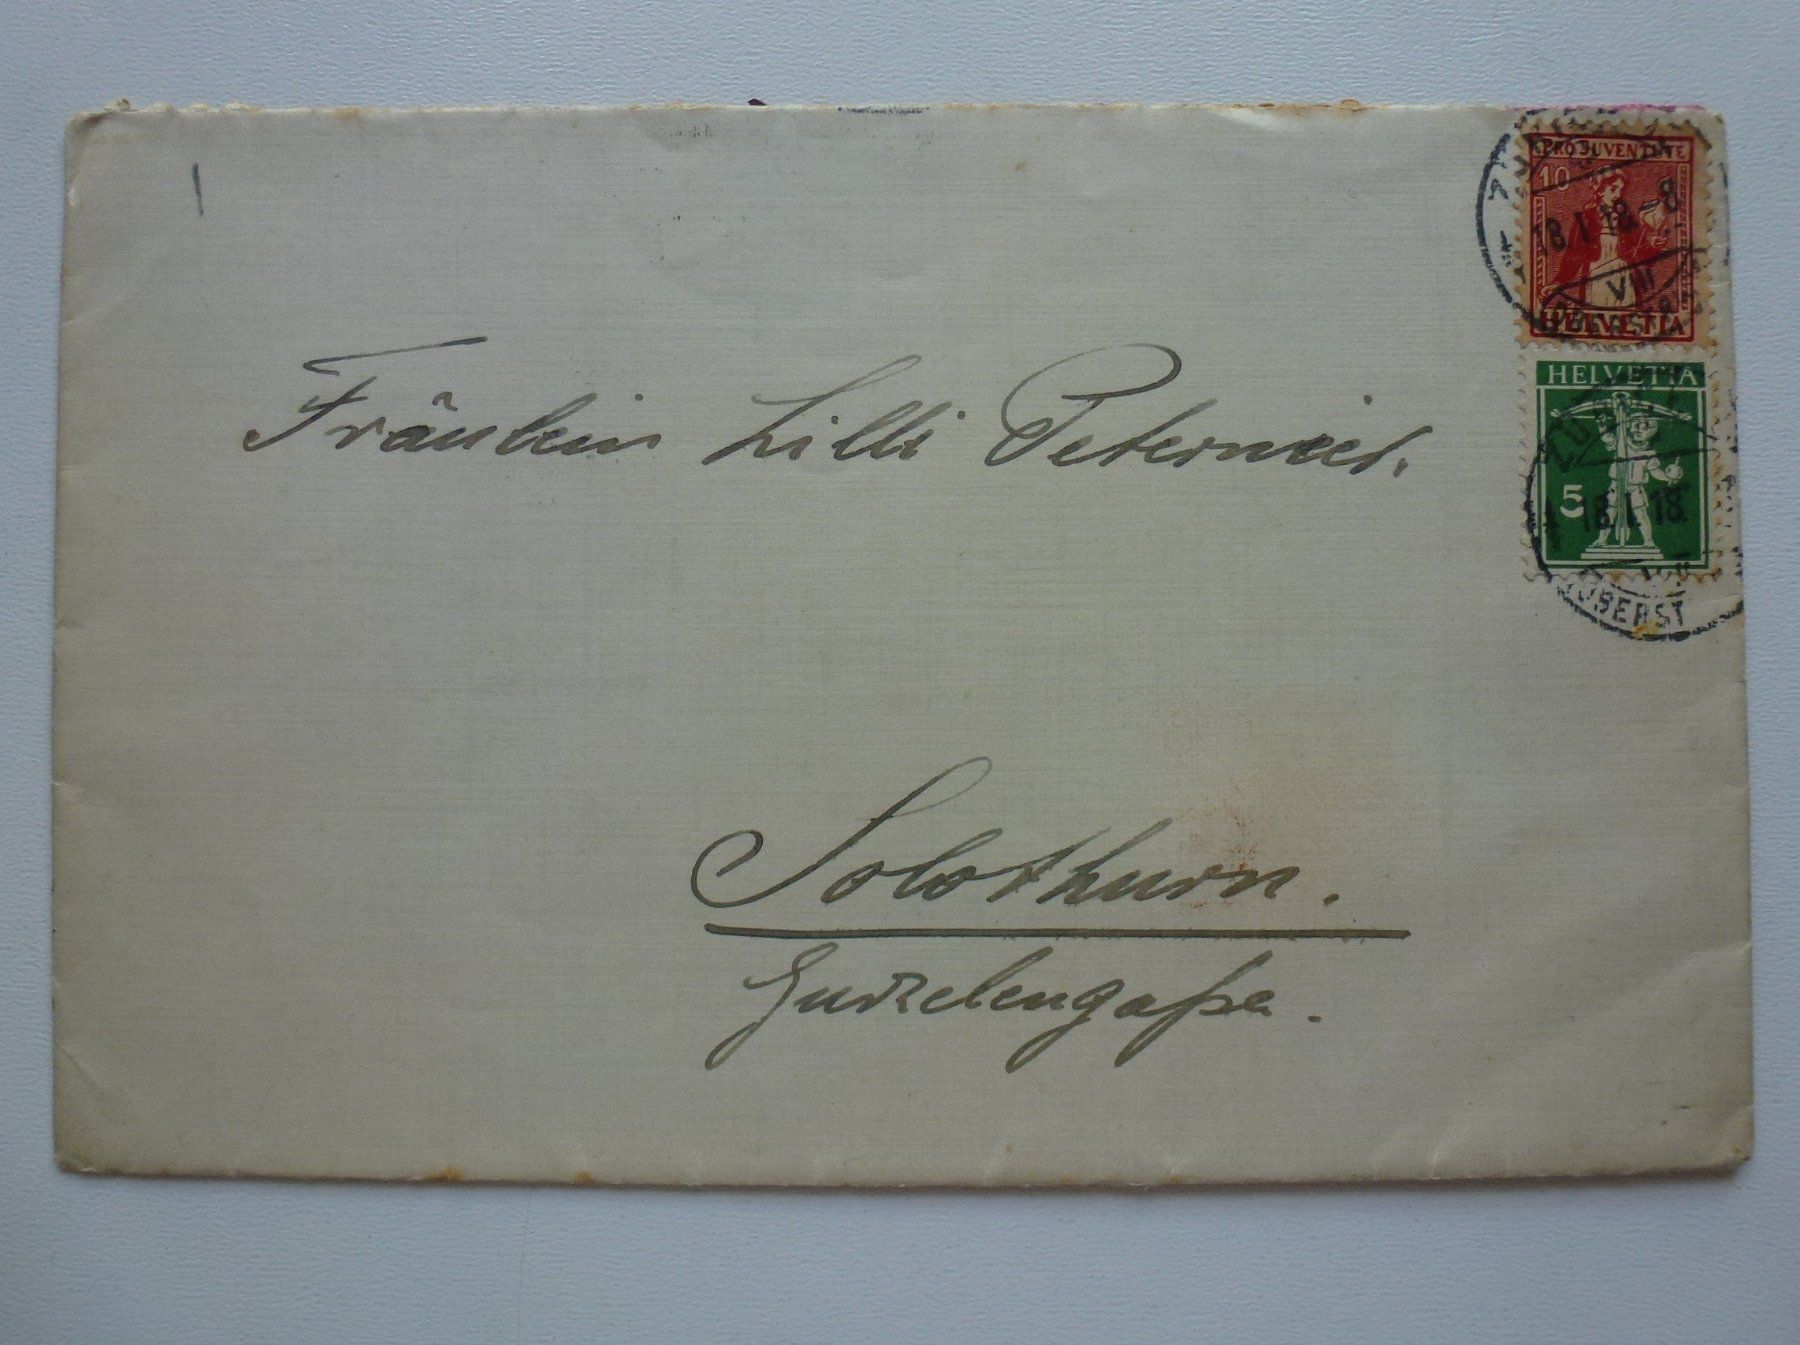 PRO JUVENTUTE
10
18.I.18.-8
VIII
HELVETIA
HELVETIA
5
18.I.18.
OBERST
Fräulein Lilli
Solothurn.
Gurzelengaße.